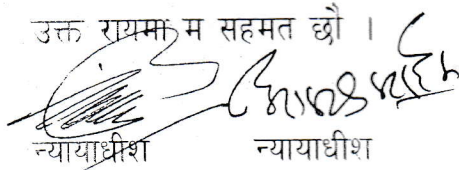 उक्त रायमा म सहमत छौ ।
न्यायाधीश न्यायाधीश